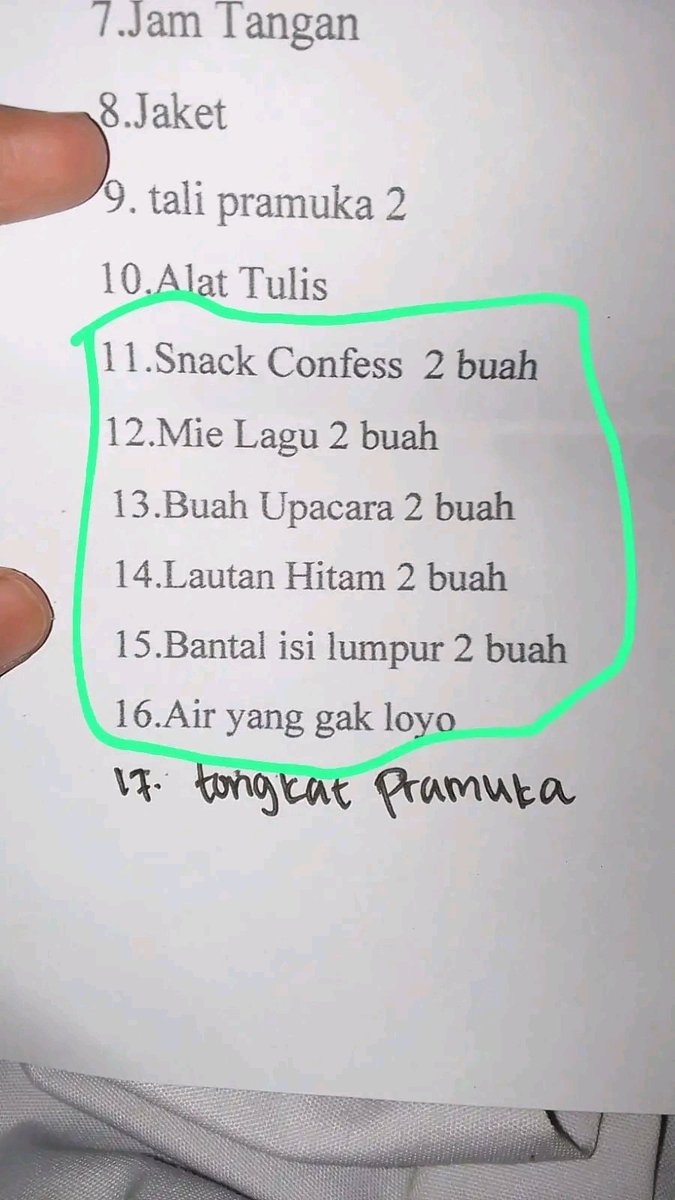 7.Jam Tangan
8.Jaket
9. tali pramuka 2
10.Alat Tulis
11.Snack Confess 2 buah
12.Mie Lagu 2 buah
13.Buah Upacara 2 buah
14.Lautan Hitam 2 buah
15.Bantal isi lumpur 2 buah
16.Air yang gak loyo
17. tongkat Pramuka